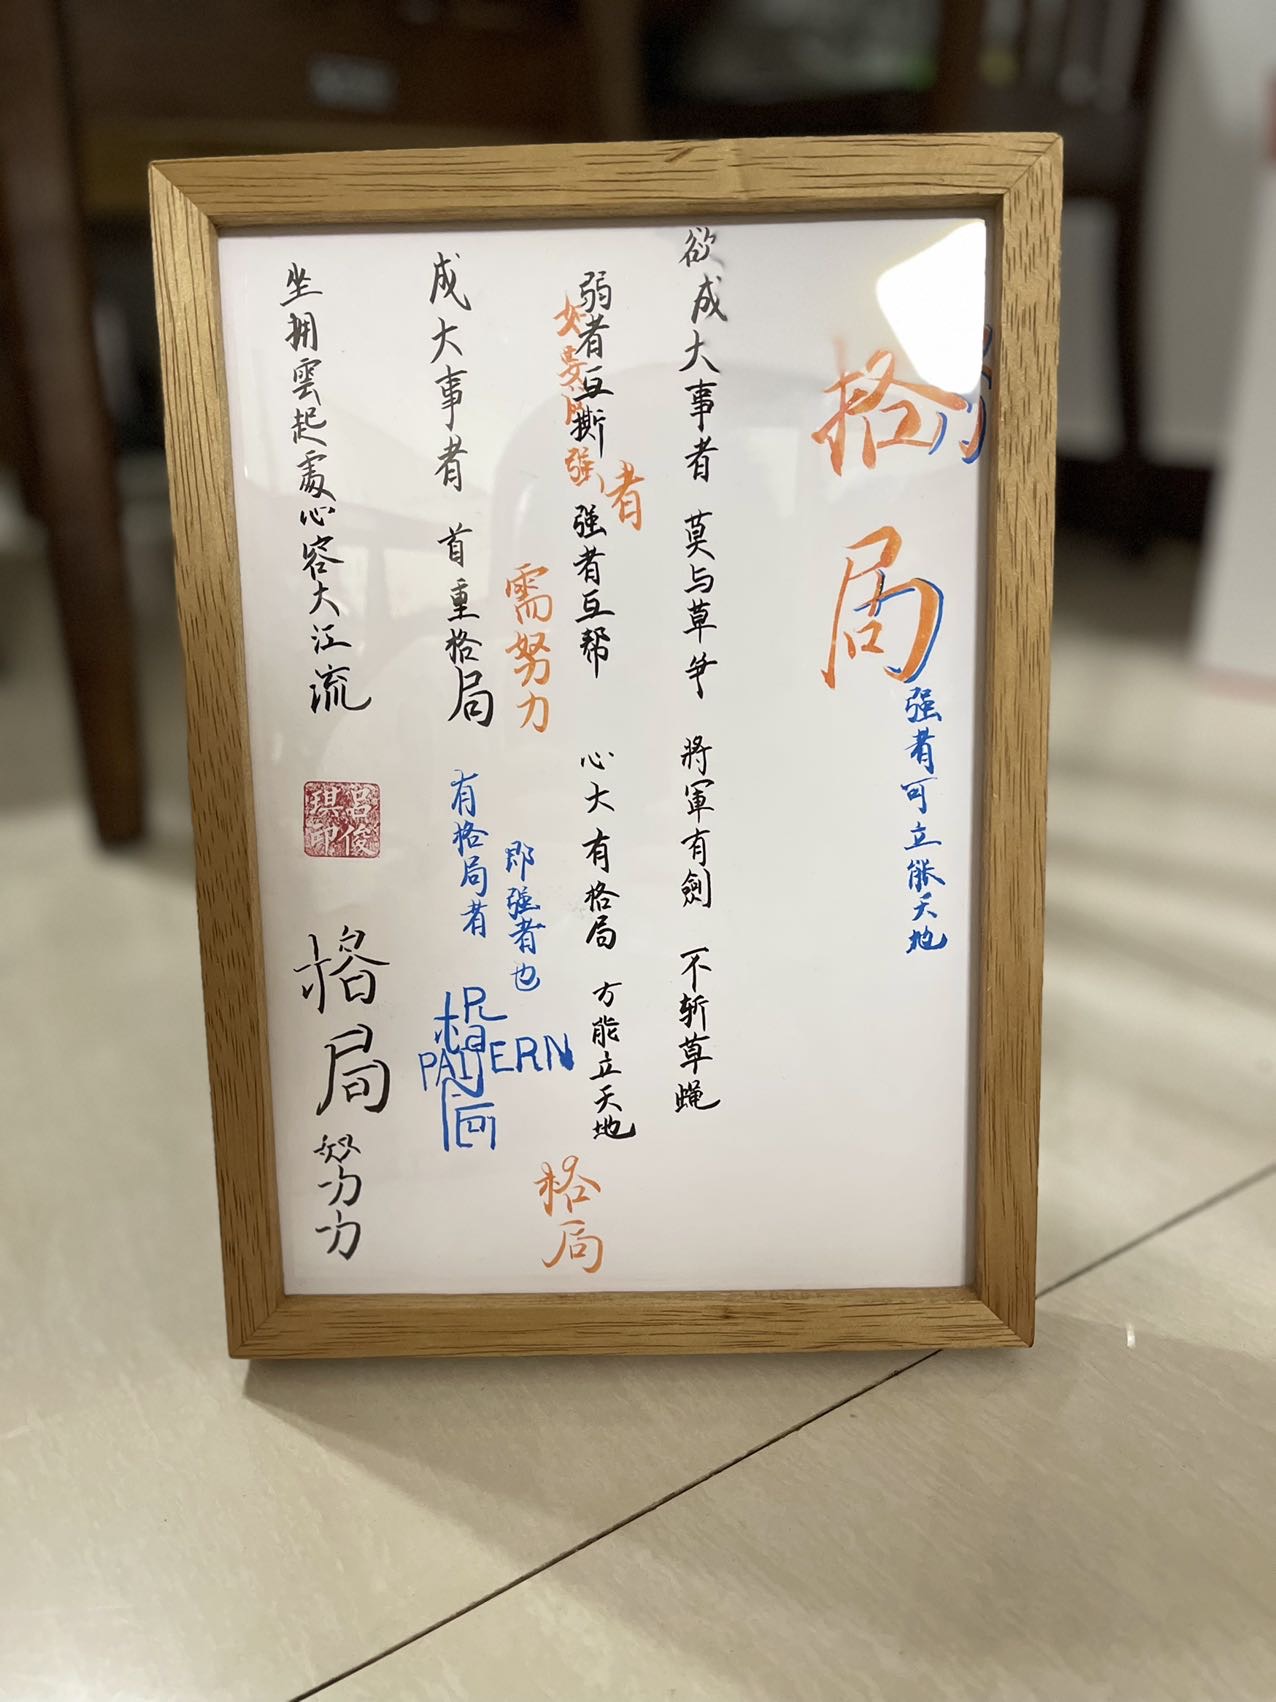 格局
强者可立能天地
欲成大事者 莫与草争 將軍有劍 不斩草蝇
弱者互撕 强者互帮 心大有格局 方能立天地
强者
需努力
格局
成大事者 首重格局
有格局者
即强者也
PATTERN
坐拥雲起處心容大江流
吕俊琪印
格局
努力